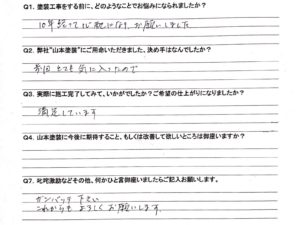 Q1. 塗装工事をする前に、どのようなことでお悩みになられましたか?
10年経って心配になり、お願いしました
Q2. 弊社"山本塗装"にご用命いただきました、決め手はなんでしたか?
とても気に入ったので
Q3. 実際に施工完了してみて、いかがでしたか?ご希望の仕上がりになりましたか?
満足しています
Q4. 山本塗装に今後に期待すること、もしくは改善して欲しいところは御座いますか?
Q7. 叱咤激励などその他、何かひと言御座いましたらご記入お願いします。
ガンバッテ下さい
これからもよろしくお願いします。